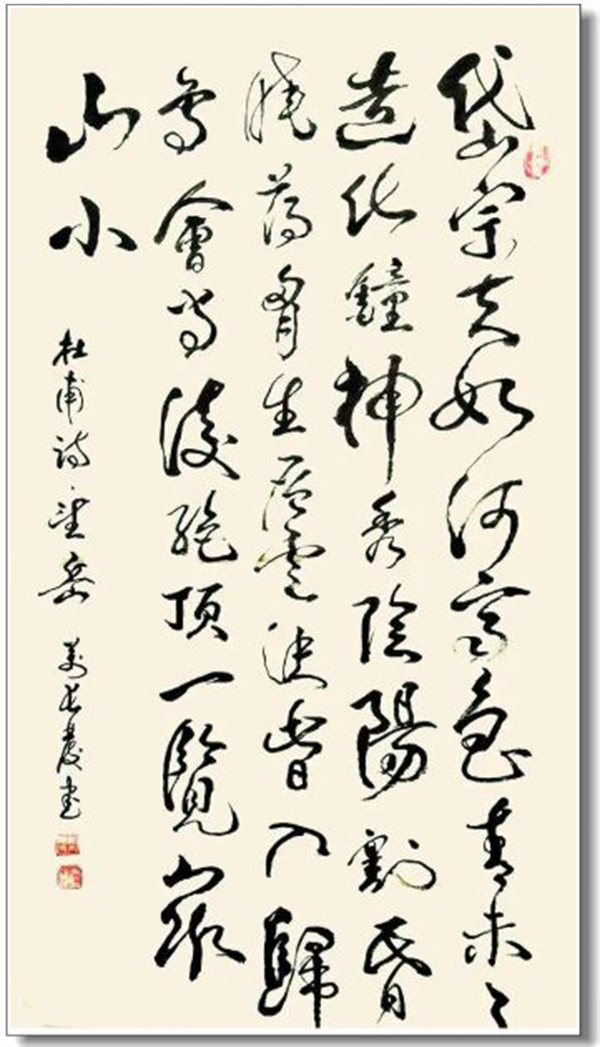 岱宗夫如何齐鲁青未了
造化鐘神秀陰陽割昏
曉蕩胷生层雲決眥入歸
鳥會當凌絕顶一覽眾
山小
杜甫诗·望岳 书